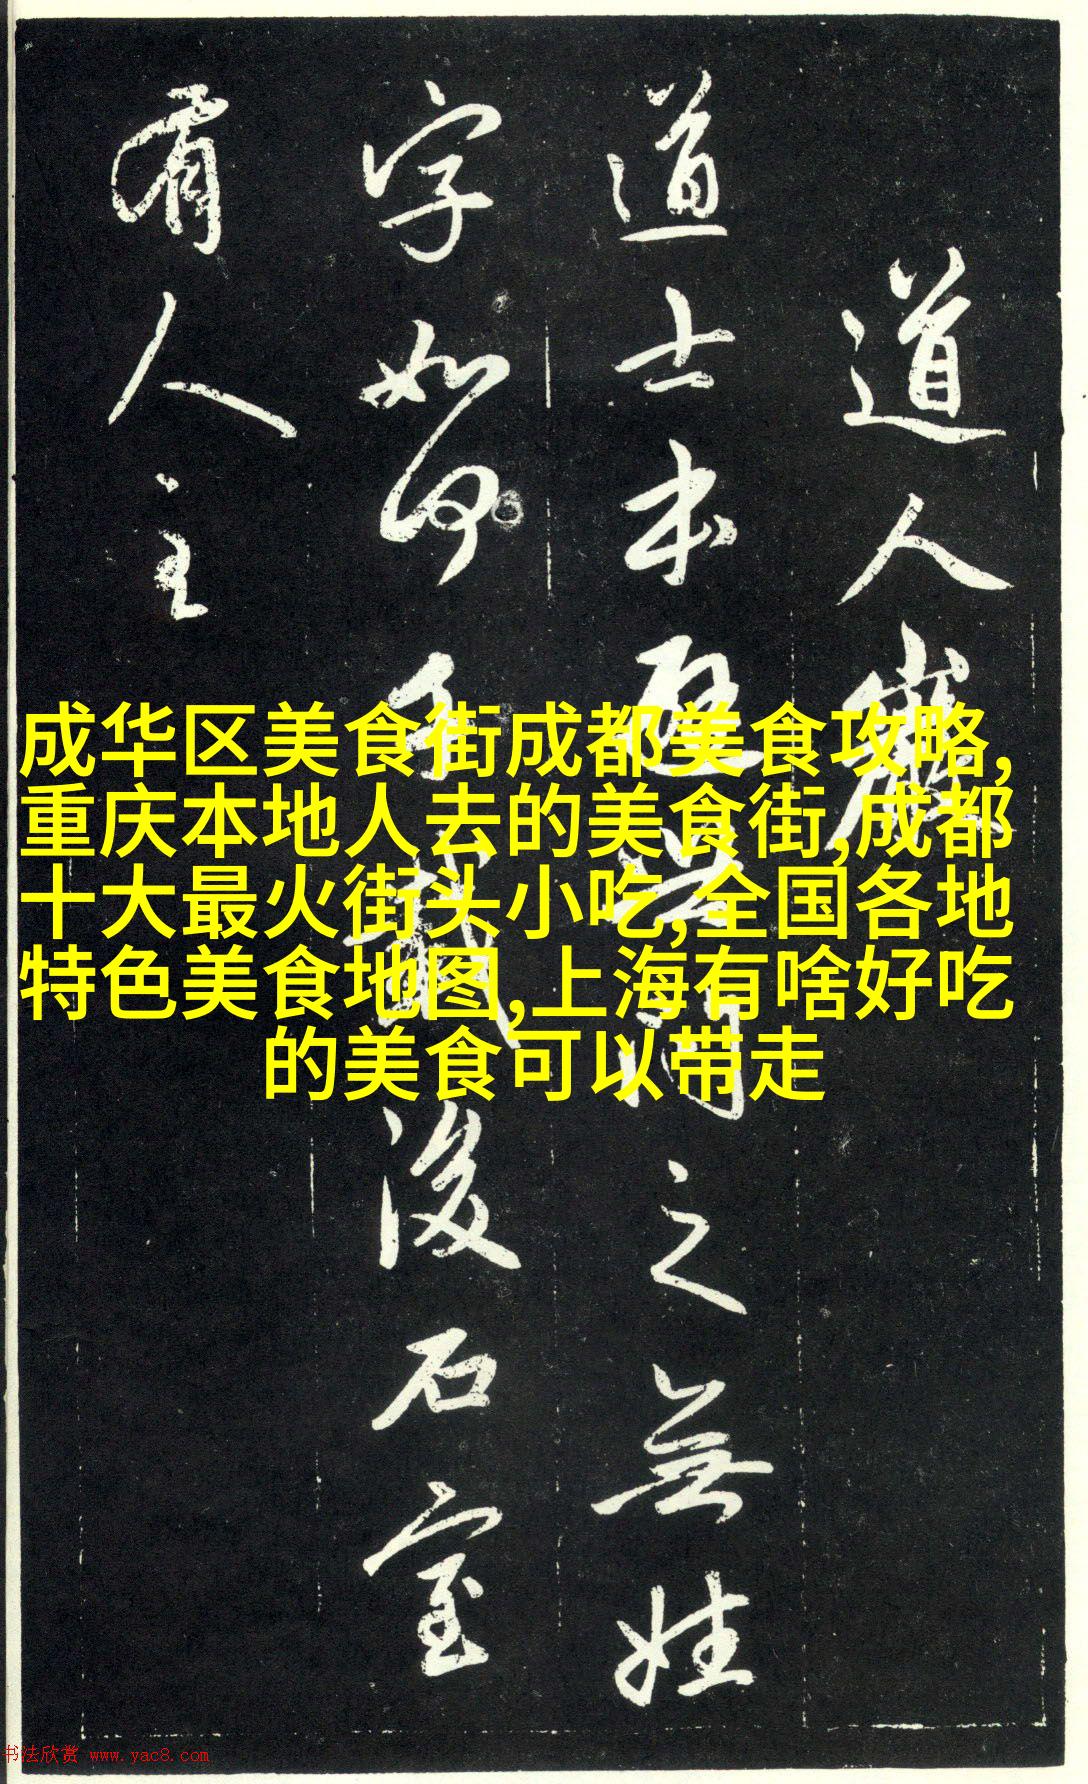 道人巖
道士本无
之無姓
字如何
後石室
有人主
成华区美食街成都美食攻略,
重庆本地人去的美食街,成都
十大最火街头小吃,全国各地
特色美食地图,上海有啥好吃
的美食可以带走
书法欣赏 www.yac8.com